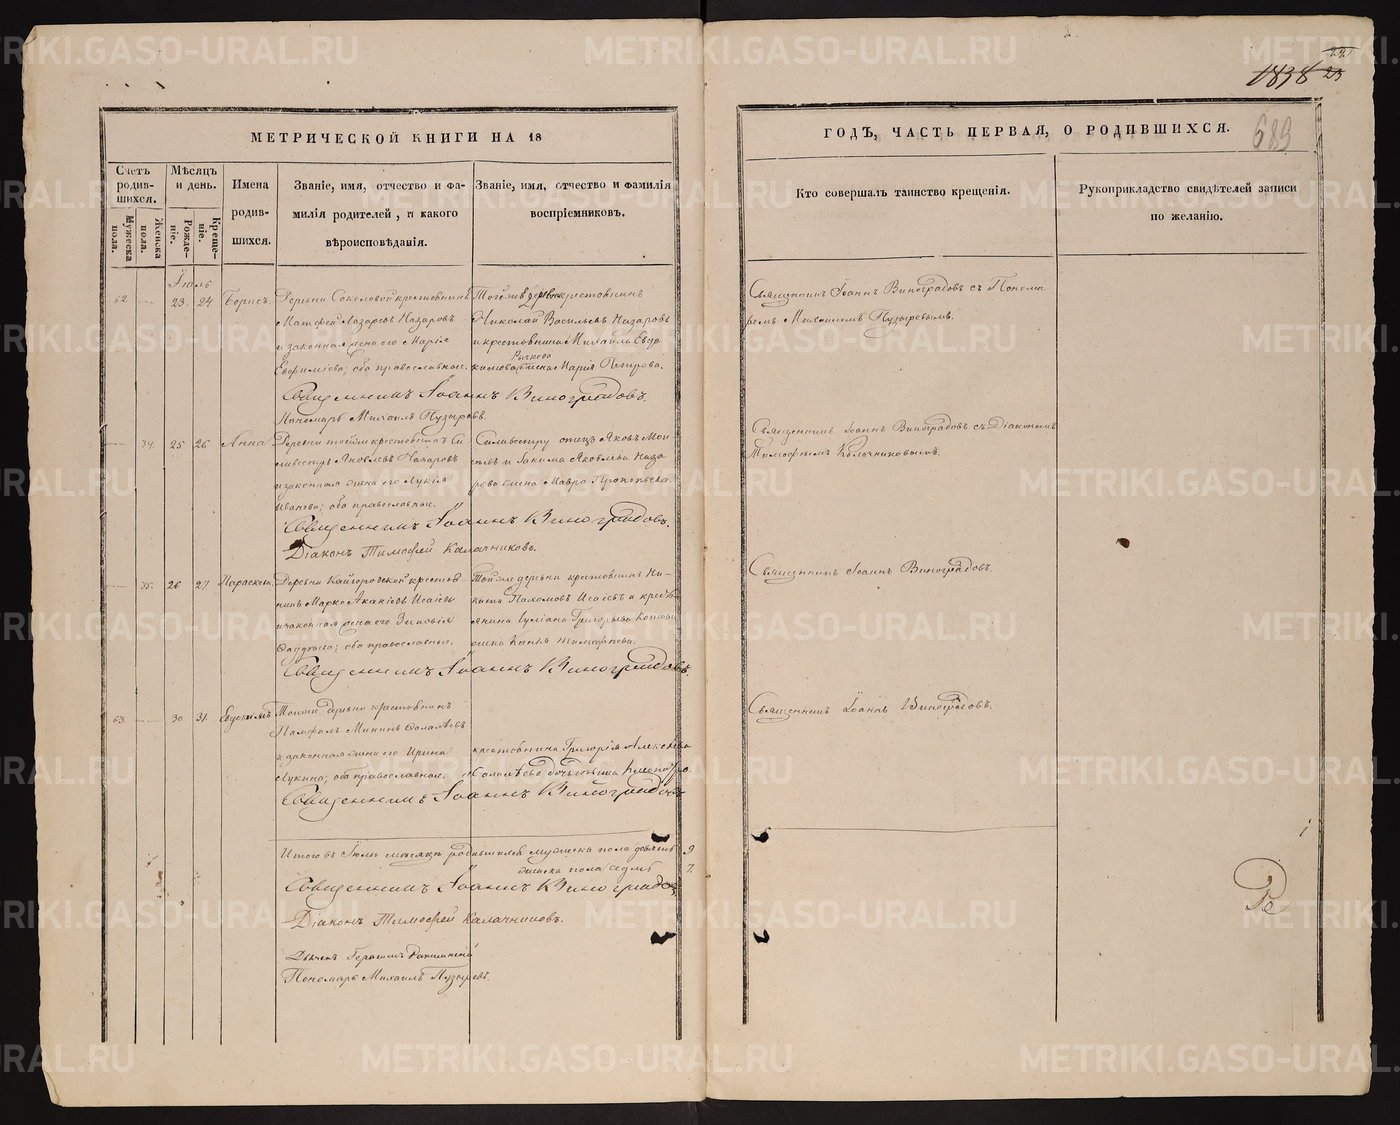 22
1838 23
689
МЕТРИЧЕСКОЙ КНИГИ НА 18
ГОДЪ, ЧАСТЬ ПЕРВАЯ, О РОДИВШИХСЯ.
Счетъ родив- шихся.
Мужеска пола.
Женска пола.
Мѣсяцъ и день.
Рожде- ніе.
Креще- ніе.
Имена родив- шихся.
Званіе, имя, отчество и фа- милія родителей, и какого вѣроисповѣданія.
Званіе, имя, отчество и фамилія воспріемниковъ.
Кто совершалъ таинство крещенія.
Рукоприкладство свидѣтелей записи по желанію.
Іюль
62. 23. 24. Борисъ.
Деревни Соколовой крестьянинъ
Матфей Лазаревъ Назаровъ
и законная жена его Марія
Евфиміева; оба православные.
Тойже деревни крестьянинъ
Николай Васильевъ Назаровъ
и крестьянина Михайла Евдо
Рычкова
кимова жена Марія Петрова.
Священникъ Іоаннъ Виноградовъ.
Пономарь Михаилъ Пузыревъ.
Священникъ Іоаннъ Виноградовъ съ Понома
ремъ Михаиломъ Пузыревымъ.
34. 25 26 Анна
Деревни тойже крестьянинъ Си
львестръ Яковлевъ Назаровъ
и законная жена его Лукія
Иванова; оба православные.
Сильвестру отецъ Яковъ Мои
сеевъ и Іакима Яковлева Наза
рова жена Мавра Прокопьева.
Священникъ Іоаннъ Виноградовъ.
Діаконъ Тимофей Калачниковъ.
Священникъ Іоаннъ Виноградовъ съ Діакономъ
Тимофеемъ Калачниковымъ.
35. 26 27. Параскева.
Деревни Кайгородской крестья
нинъ Марко Исаевъ
и законная жена его Зиновія
оба православные.
Тойже деревни крестьянинъ Ни-
кита Пахомовъ Исаевъ и крестья
янина Григорьева
жена Тимофеева.
Священникъ Іоаннъ Виноградовъ.
Священникъ Іоаннъ Виноградовъ.
63. 30 31. Евдокимъ
Тойже деревни крестьянинъ
Памфилъ Мининъ
и законная жена его Ирина
Лукина; оба православные.
крестьянина Григорія Алексѣева
Священникъ Іоаннъ Виноградовъ
Священникъ Іоаннъ Виноградовъ.
Итого въ Іюлѣ мѣсяцѣ родившихся мужеска пола девять 9
женска пола седмь 7.
Священникъ Іоаннъ Виноградовъ
Діаконъ Тимофей Калачниковъ.
Дьячекъ Герасимъ
Пономарь Михаилъ Пузыревъ.
METRIKI.GASO-URAL.RU